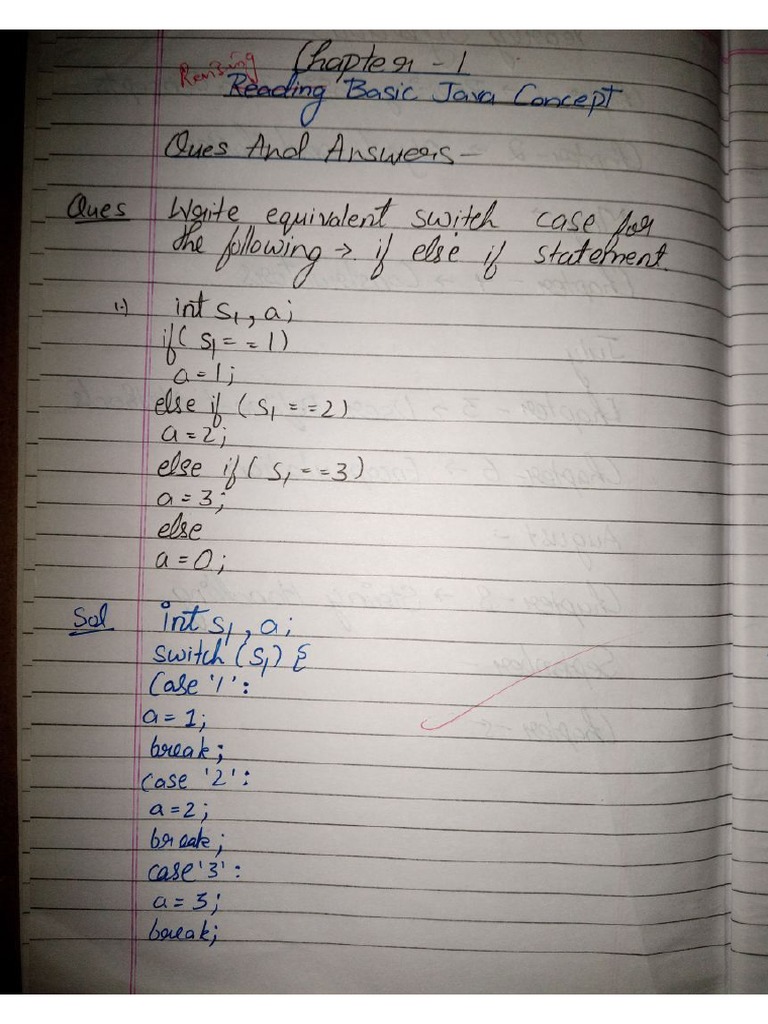 Chapter - 1
Revising
Reading Basic Java Concept
Ques And Answers -
Ques Write equivalent switch case for
the following → if else if statement.
1.) int s1, a;
if( s1 = = 1)
a = 1;
else if ( s1 = = 2)
a = 2;
else if ( s1 = = 3)
a = 3;
else
a = 0;
Sol int s1, a;
switch (s1) {
Case '1':
a = 1;
break;
case '2':
a = 2;
break;
case '3':
a = 3;
break;